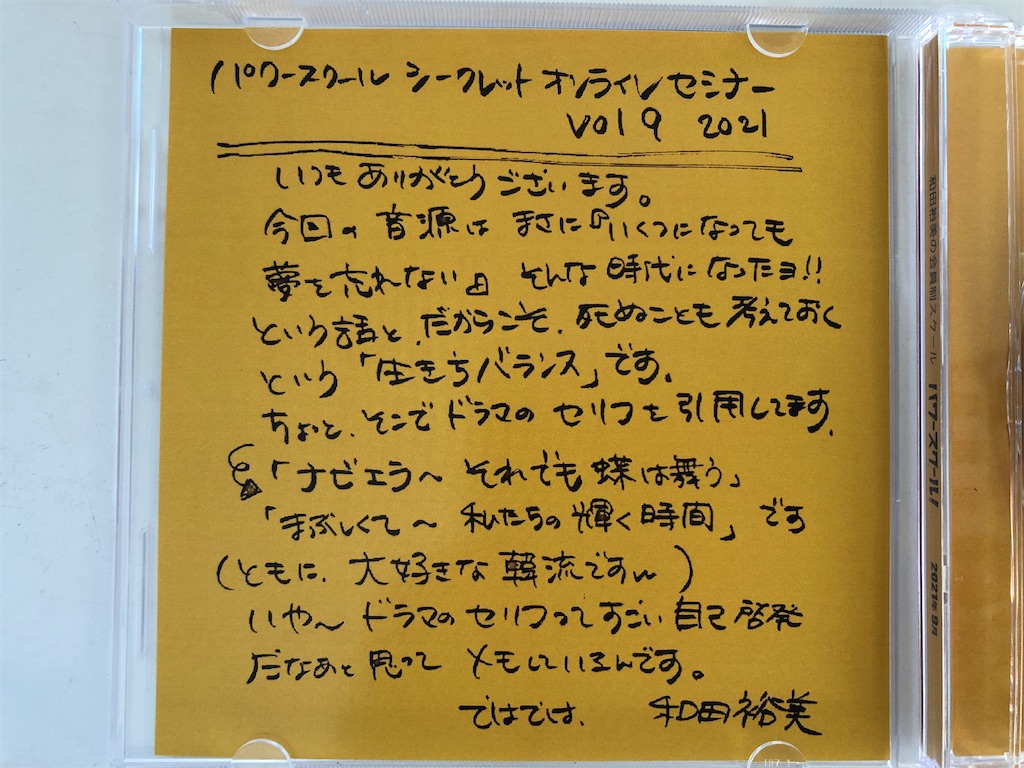 パワースクール シークレット オンライン セミナー
vol 9 2021
いつも ありがとうございます。
今回の音源は まさに『いくつになっても
夢を忘れない』そんな時代になったヨ!!
という話と、だからこそ、死ぬことも考えておく
という「生きちバランス」です。
ちょっと、そこでドラマの セリフを引用してます。
「ナビエラ〜 それでも 蝶は舞う」
「まぶしくて〜 私たちの輝く時間」です
(ともに、大好きな韓流ですw)
いや〜 ドラマのセリフってすごい自己啓発
だなあと思って メモしているんです。
ではでは、 和田裕美
和田裕美の会員制スクール パワースクール! 2021年9月